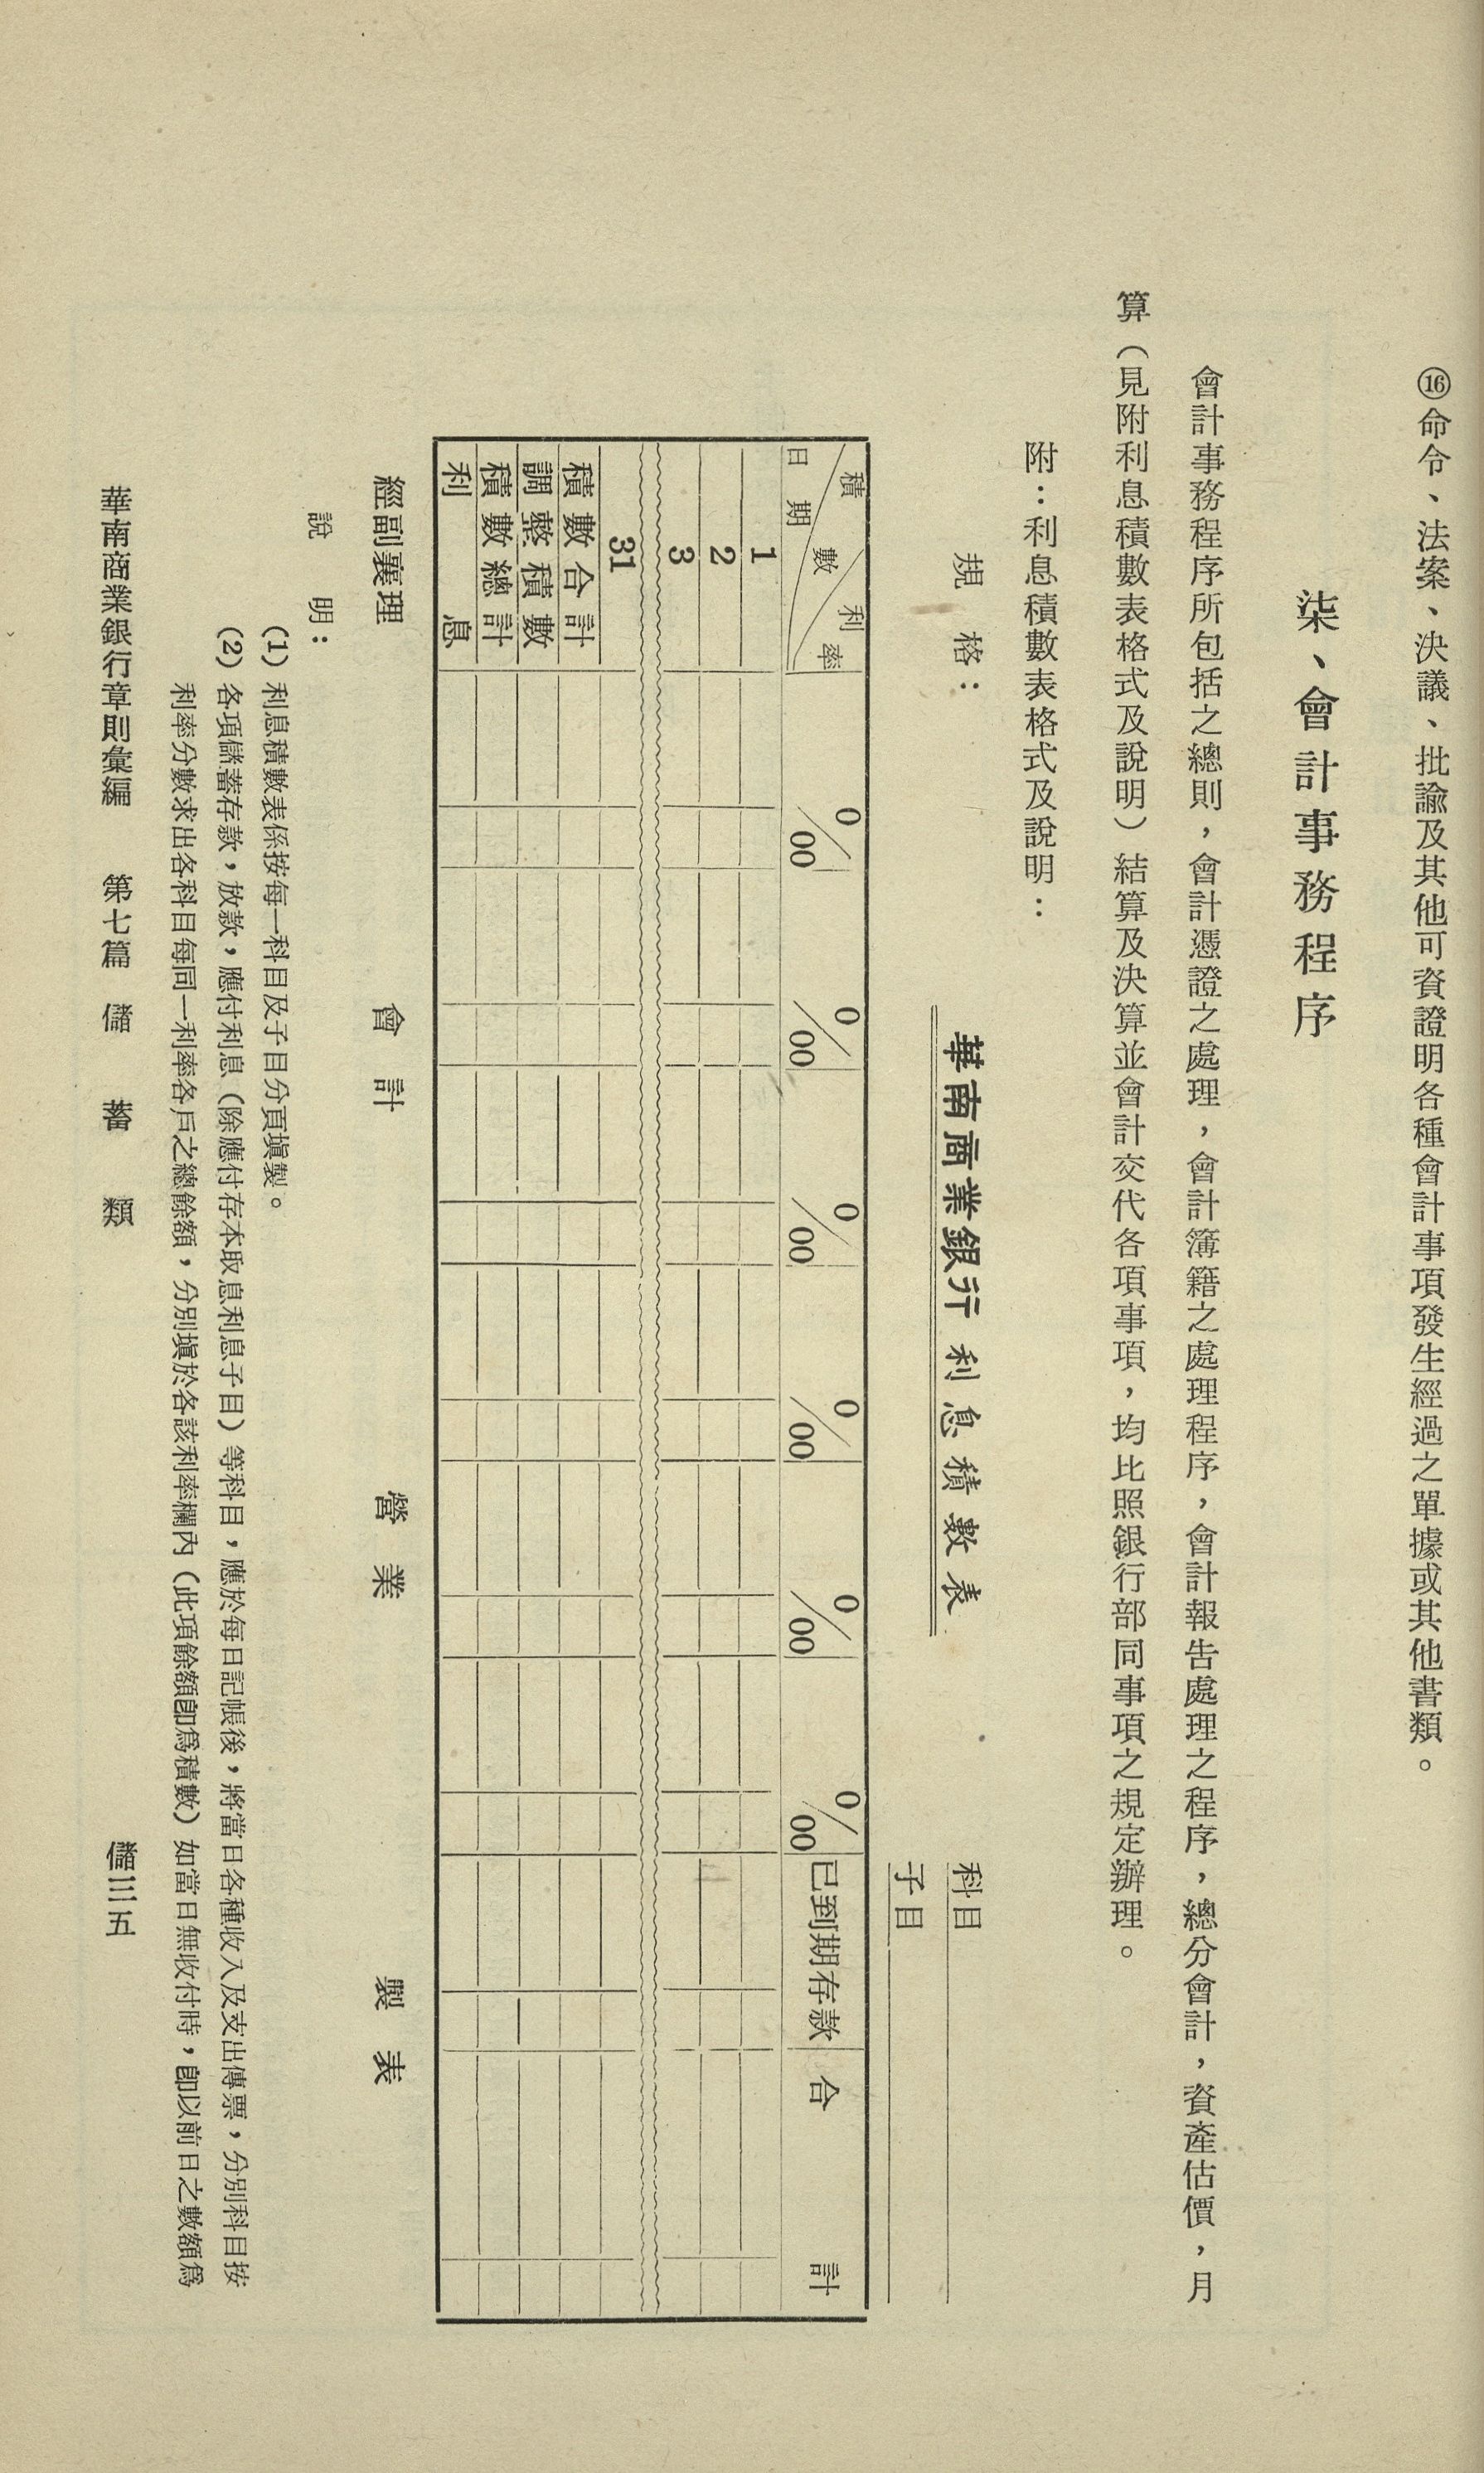 ⑯命令、法案、決議、批諭及其他可資證明各種會計事項發生經過之單據或其他書類。
柒、會計事務程序
會計事務程序所包括之總則，會計憑證之處理，會計簿籍之處理程序，會計報告處理之程序，總分會計，資產估價，月
算（見附利息積數表格式及說明）結算及決算並會計交代各項事項，均比照銀行部同事項之規定辦理。
附：利息積數表格式及說明：
規格：
華南商業銀行利息積數表
科目
子目
積數 利率 日期 0/00 0/00 0/00 0/00 0/00 0/00 已到期存款 合計
1
2
3
31
積數合計
調整積數
積數總計
利息
經副襄理 會計 營業 製表
說明：
(1) 利息積數表係按每一科目及子目分頁塡製。
(2) 各項儲蓄存款，放款，應付利息（除應付存本取息利息子目）等科目，應於每日記帳後，將當日各種收入及支出傳票，分別科目按
利率分數求出各科目每同一利率各戶之總餘額，分別塡於各該利率欄內（此項餘額卽爲積數）如當日無收付時，卽以前日之數額爲
華南商業銀行章則彙編 第七篇 儲蓄類 儲三五